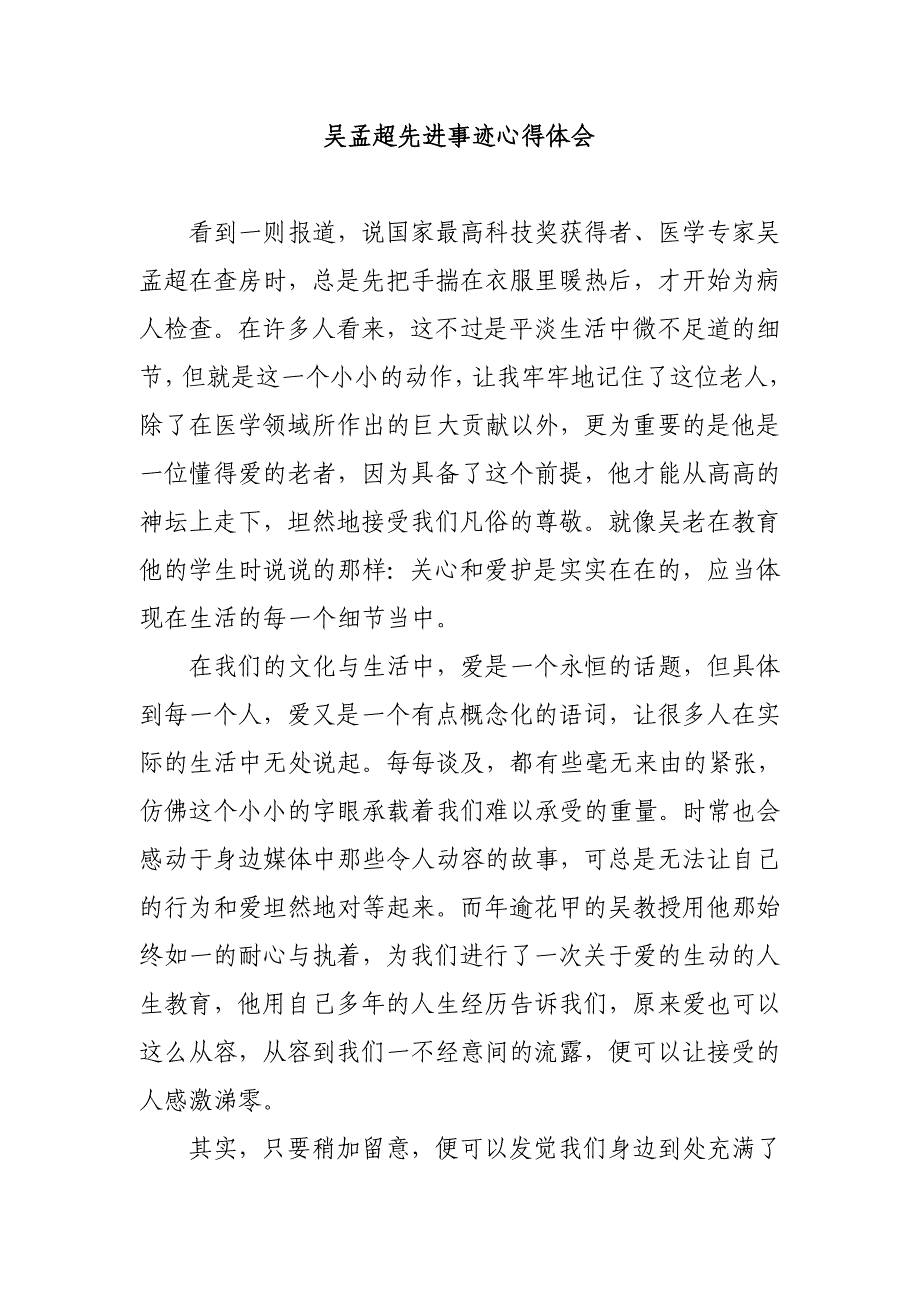 吴孟超先进事迹心得体会
看到一则报道，说国家最高科技奖获得者、医学专家吴
孟超在查房时，总是先把手揣在衣服里暖热后，才开始为病
人检查。在许多人看来，这不过是平淡生活中微不足道的细
节，但就是这一个小小的动作，让我牢牢地记住了这位老人，
除了在医学领域所作出的巨大贡献以外，更为重要的是他是
一位懂得爱的老者，因为具备了这个前提，他才能从高高的
神坛上走下，坦然地接受我们凡俗的尊敬。就像吴老在教育
他的学生时说说的那样：关心和爱护是实实在在的，应当体
现在生活的每一个细节当中。
在我们的文化与生活中，爱是一个永恒的话题，但具体
到每一个人，爱又是一个有点概念化的语词，让很多人在实
际的生活中无处说起。每每谈及，都有些毫无来由的紧张，
仿佛这个小小的字眼承载着我们难以承受的重量。时常也会
感动于身边媒体中那些令人动容的故事，可总是无法让自己
的行为和爱坦然地对等起来。而年逾花甲的吴教授用他那始
终如一的耐心与执着，为我们进行了一次关于爱的生动的人
生教育，他用自己多年的人生经历告诉我们，原来爱也可以
这么从容，从容到我们一不经意间的流露，便可以让接受的
人感激涕零。
其实，只要稍加留意，便可以发觉我们身边到处充满了